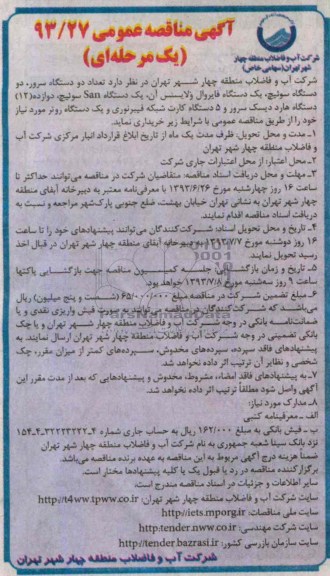 آگهی مناقصه عمومی ۹۳/۲۷
(یک مرحله‌ای)
شرکت آب و فاضلاب منطقه چهار
شهر تهران (سهامی خاص)
شرکت آب و فاضلاب منطقه چهار شهر تهران در نظر دارد تعداد دو دستگاه سرور، دو
دستگاه سوئیچ، یک دستگاه فایروال ولایسنس آن، یک دستگاه San سوئیچ، دوازده(۱۲)
دستگاه هارد دیسک سرور و ۵ دستگاه کارت شبکه فیبرنوری و یک دستگاه روتر مورد نیاز
خود را از طریق مناقصه عمومی با شرایط زیر خریداری نماید.
۱ـ مدت و محل تحویل: ظرف مدت یک ماه از تاریخ ابلاغ قرارداد انبار مرکزی شرکت آب
و فاضلاب منطقه چهار شهر تهران
۲ـ محل اعتبار: از محل اعتبارات جاری شرکت
۳ـ مهلت و محل دریافت اسناد مناقصه: متقاضیان شرکت در مناقصه می‌توانند حداکثر تا
ساعت ۱۶ روز چهارشنبه مورخ ۱۳۹۳/۶/۲۶ با معرفی‌نامه معتبر به دبیرخانه آبفای منطقه
چهار شهر تهران به نشانی تهران خیابان بهشت، ضلع جنوبی پارک‌شهر مراجعه و نسبت به
دریافت اسناد مناقصه اقدام نمایند.
۴ـ تاریخ و محل تحویل اسناد: شرکت‌کنندگان می‌توانند پیشنهادهای خود را تا ساعت
۱۶ روز دوشنبه مورخ ۱۳۹۳/۷/۷ به دبیرخانه آبفای منطقه چهار شهر تهران در قبال اخذ
رسید تحویل نمایند.
۵ـ تاریخ و زمان بازگشایی: جلسه کمیسیون مناقصه جهت بازگشایی پاکتها
ساعت ۹ روز سه‌شنبه مورخ ۱۳۹۳/۷/۸ خواهد بود.
۶ـ مبلغ تضمین شرکت در مناقصه مبلغ ۶۵/۰۰۰/۰۰۰ (شصت و پنج میلیون) ریال
می‌باشد که شرکت‌کنندگان در مناقصه می‌توانند به صورت فیش واریزی نقدی و یا
ضمانت‌نامه بانکی در وجه شرکت آب و فاضلاب منطقه چهار شهر تهران و یا چک
بانکی تضمینی در وجه شرکت آب و فاضلاب منطقه چهار شهر تهران ارسال نمایند. به
پیشنهادهای فاقد سپرده، سپرده‌های مخدوش، سپرده‌های کمتر از میزان مقرر، چک
شخصی و نظایر آن ترتیب اثر داده نخواهد شد.
۷ـ به پیشنهادهای فاقد امضاء، مشروط، مخدوش و پیشنهادهایی که بعد از مدت مقرر این
آگهی واصل شود مطلقاً ترتیب اثر داده نخواهد شد.
۸ـ مدارک مورد نیاز:
الف ـ معرفینامه کتبی
ب ـ فیش بانکی به مبلغ ۱۶۲/۰۰۰ ریال به حساب جاری شماره
نزد بانک سینا شعبه جمهوری به نام شرکت آب و فاضلاب منطقه چهار شهر تهران
ضمناً هزینه درج آگهی مربوط به این مناقصه به عهده برنده مناقصه می‌باشد.
برگزارکننده مناقصه در رد یا قبول یک یا کلیه پیشنهادها مختار است.
سایر اطلاعات و جزئیات در اسناد مناقصه مندرج است.
سایت شرکت آب و فاضلاب منطقه چهار شهر تهران: http://t4ww.tpww.co.ir
سایت ملی مناقصات: http://iets.mporg.ir
سایت شرکت مهندسی: http:tender.nww.co.ir
سایت سازمان بازرسی کشور: http://tender.bazrasi.ir
شرکت آب و فاضلاب منطقه چهار شهر تهران